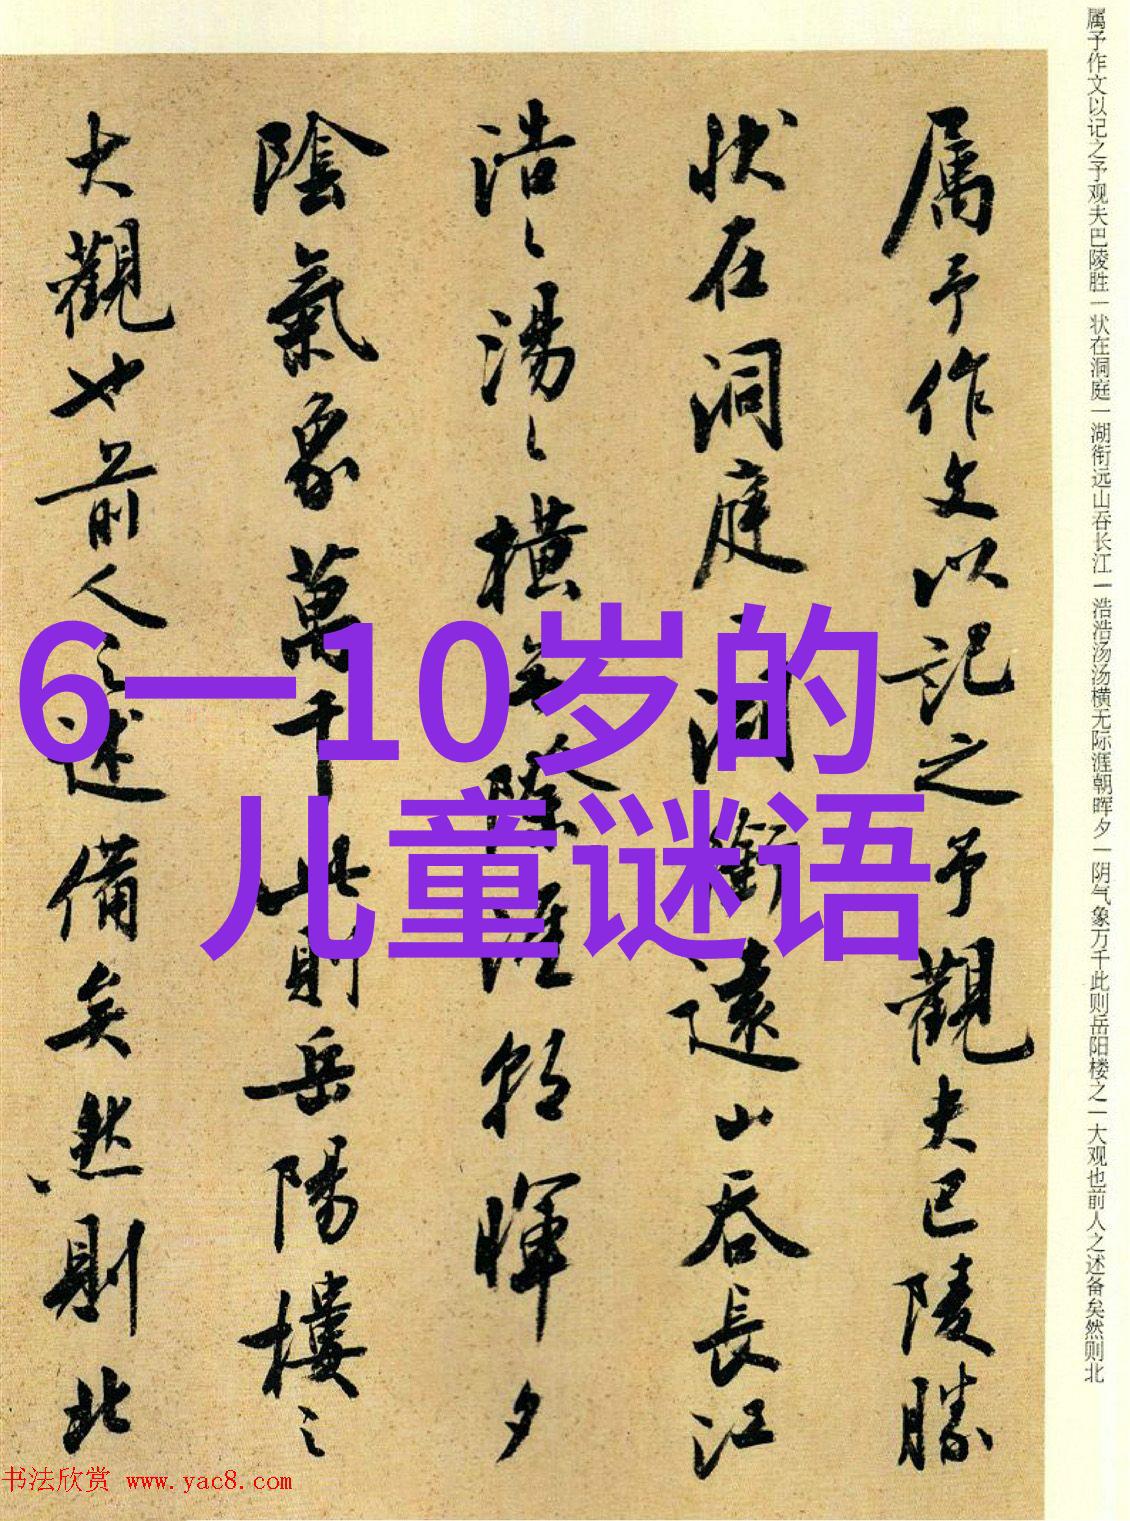 属予作文以记之予观夫巴陵胜一状在洞庭一湖衔远山吞长江一浩浩汤汤横无际涯朝晖夕一阴气象万千此则岳阳楼之一大观也前人之述备矣然则北
属予作文以記之予觀夫巴陵勝
状在洞庭一湖銜遠山吞長江
浩〻湯〻横無際涯朝暉夕
陰氣象萬千此則岳陽樓之
大觀也前人之述備矣然則北
6一10岁的
儿童谜语
书法欣赏 www.yac8.com